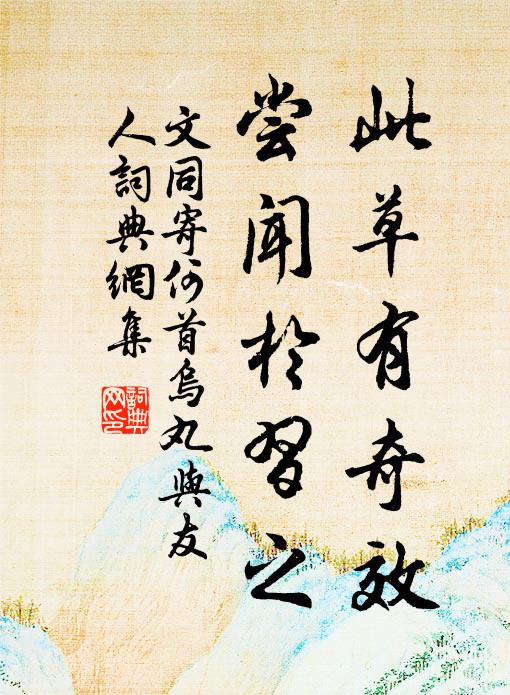 此草有奇效
尝闻於习之
文同寄何首乌丸與友
人詞典網集
詞典
网印